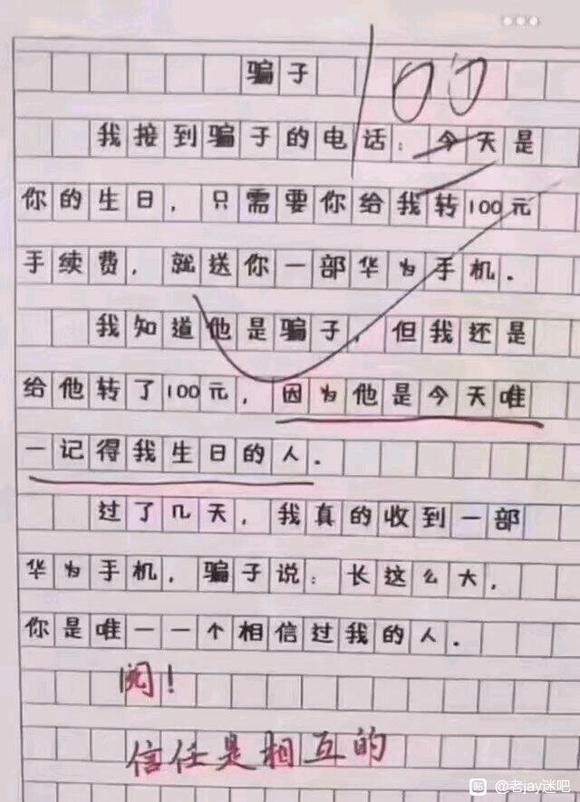 骗子
100
我接到骗子的电话：今天是
你的生日，只需要你给我转100元
手续费，就送你一部华为手机．
我知道他是骗子，但我还是
给他转了100元，因为他是今天唯
一记得我生日的人．
过了几天，我真的收到一部
华为手机，骗子说：长这么大，
你是唯一一个相信过我的人．
阅！
信任是相互的
@老jay迷吧